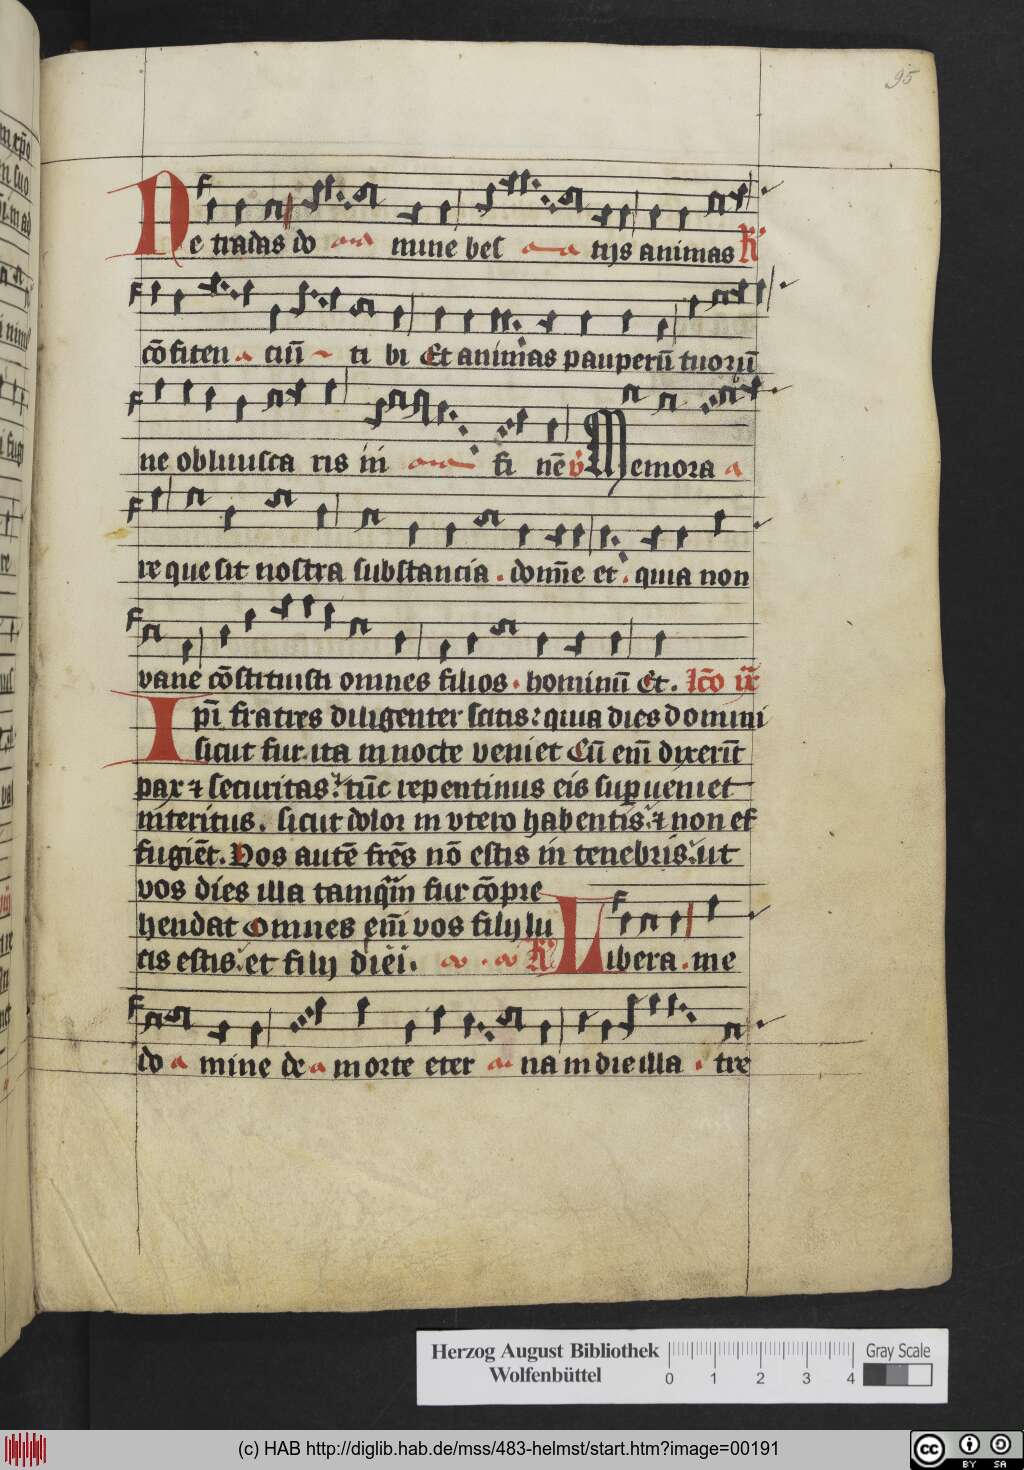 95
Ne tradas do mine bes tijs animas R
cōfiten ciū ti bi Et animas pauperū tuorū
ne obliuisca ris in fi nē v̄ Memora
re que sit nostra substancia . dom̄e et . quia non
vane cōstituisti omnes filios . hominū Et .
Ipī fratres diligenter scitis: quia dies domini
sicut fur . ita in nocte veniet Cū em̄ dixerīt
pax ⁊ securitas: tūc repentinus eis superueniet
interitus . sicut dolor in vtero habentis: ⁊ non ef
fugiēt. Vos autē frēs nō estis in tenebris: ut
vos dies illa tamquam fur cōpre
hendat Omnes em̄ vos filij lu
cis estis: et filij diei . R Libera . me
do mine de morte eter na in die illa . tre
Herzog August Bibliothek
Wolfenbüttel
0 1 2 3 4
Gray Scale
(c) HAB http://diglib.hab.de/mss/483-helmst/start.htm?image=00191
cc BY SA